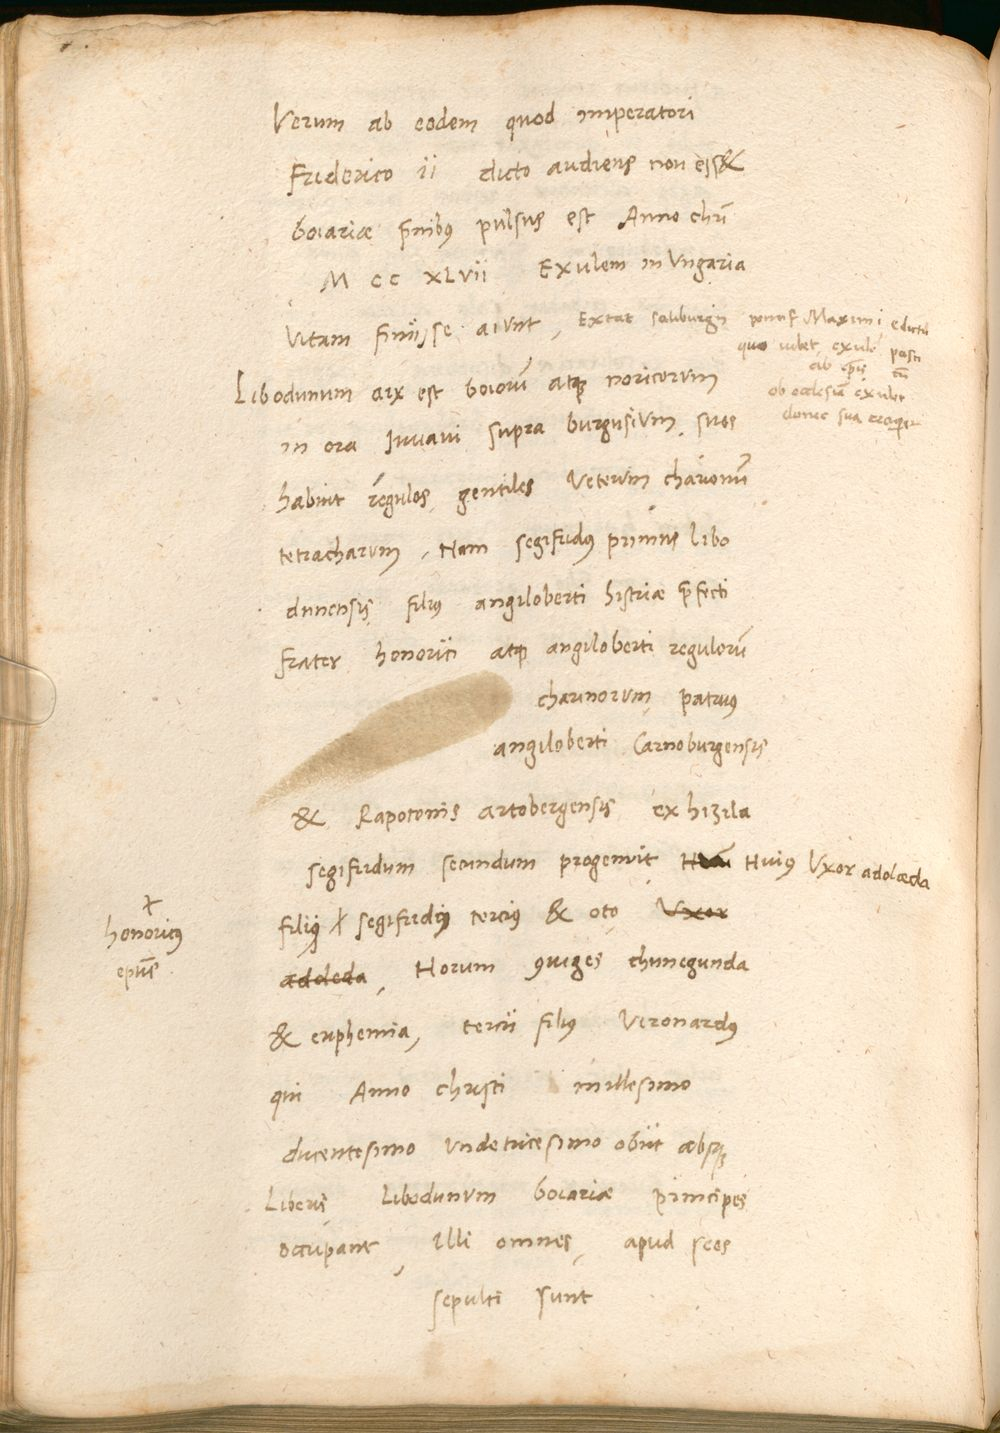 Verum ab eodem quod imperatori
Friderico ii dicto audiens non ess&
boiariæ finibꝰ pulsus est Anno chrī
M CC XLVii Exulem in Vngaria
Vitam finiisse aiunt, Extat salzburgii pontif Maximi edictū
quo iubet, exulē pasci
ab ep̄is cū
ob ecclesiā exulet
donec sua
Libodunum arx est boiorū atqꝫ noricorum
in ora Iuuaui supra burgusium suos
habuit regulos gentiles Veterum charionū
tetracharum, Nam segifridꝰ primus libo
dunensis filius angiloberti histriæ p̄fecti
frater honorici atqꝫ angiloberti regulorū
charinorum patruus
angiloberti Carnoburgensis
& Rapotonis artobergensis ex hizila
segifridum secundum progenuit Huiꝰ Vxor adolæda
filij ꝉ segifridꝰ terciꝰ & oto Vxor
ædoleda, Horum ꝯiuges chunegunda
& euphemia, tercii filius Veronardꝰ
qui Anno christi millesimo
ducentesimo vndetricesimo obiit absqꝫ
Liberis Libodunum boiariæ principes
occupant, illi omnes apud seos
sepulti sunt
ꝉ
honoricꝰ
epūs